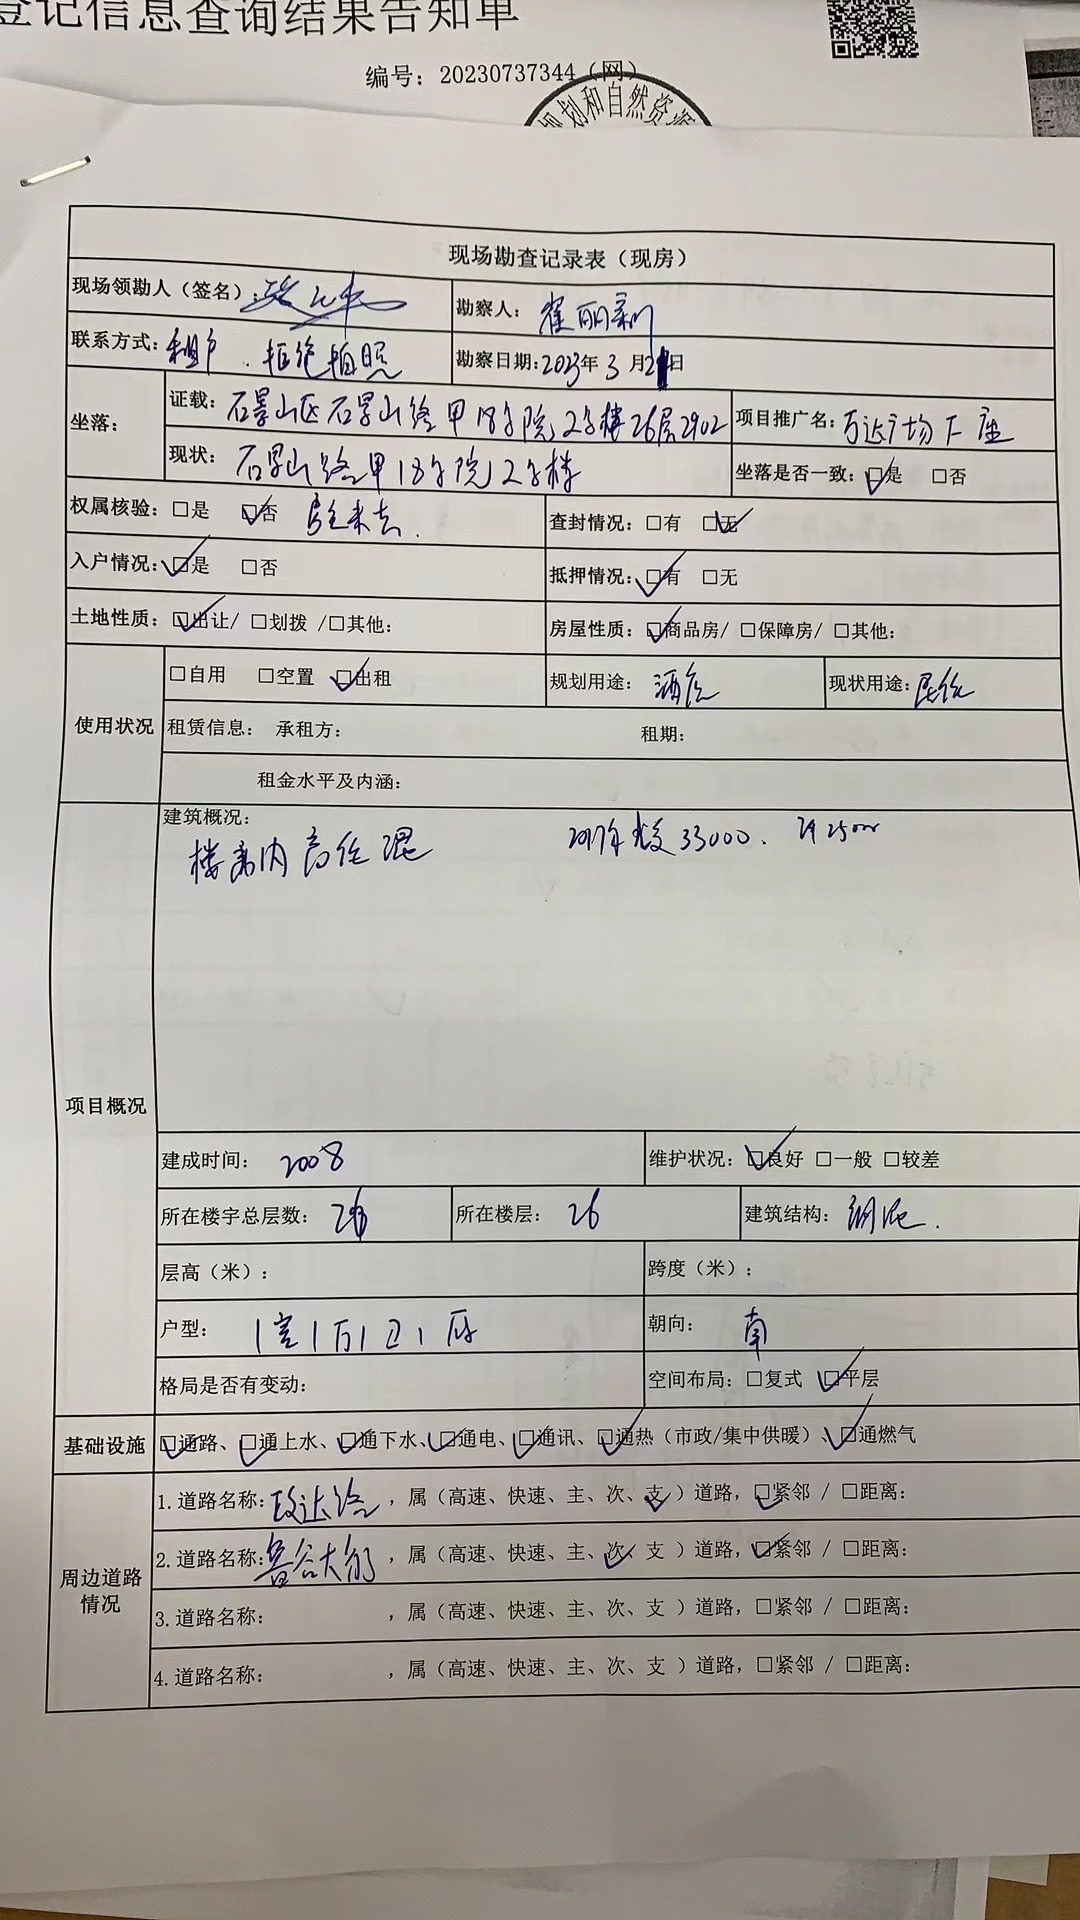 登记信息查询结果告知单
编号：20230737344（网）
规划和自然资源
现场勘查记录表（现房）
现场领勘人（签名）：
勘察人：崔丽利
联系方式：租户．拒绝拍照
勘察日期：2023年3月2日
坐落：
证载：石景山区石景山路甲18号院2号楼26层2902
项目推广名：万达广场F座
现状：石景山路甲18号院2号楼
坐落是否一致：☑是 □否
权属核验：□是 ☑否
查封情况：□有 ☑无
入户情况：☑是 □否
抵押情况：☑有 □无
土地性质：☑出让/ □划拨 /□其他：
房屋性质：☑商品房/ □保障房/ □其他：
使用状况
□自用 □空置 ☑出租
规划用途：酒店
现状用途：居住
租赁信息： 承租方： 租期：
租金水平及内涵：
项目概况
建筑概况：
楼宇内商住混 33000．
建成时间：2008
维护状况：☑良好 □一般 □较差
所在楼宇总层数：
所在楼层：26
建筑结构：钢混．
层高（米）：
跨度（米）：
户型：1室1厅1卫1厨
朝向：南
格局是否有变动：
空间布局：□复式 ☑平层
基础设施
☑通路、☑通上水、☑通下水、☑通电、☑通讯、☑通热（市政/集中供暖）、☑通燃气
周边道路情况
1.道路名称：政达路，属（高速、快速、主、次、支✓）道路，☑紧邻 / □距离：
2.道路名称：鲁谷大街，属（高速、快速、主、次✓、支 ）道路，☑紧邻 / □距离：
3.道路名称： ，属（高速、快速、主、次、支 ）道路，□紧邻 / □距离：
4.道路名称： ，属（高速、快速、主、次、支 ）道路，□紧邻 / □距离：